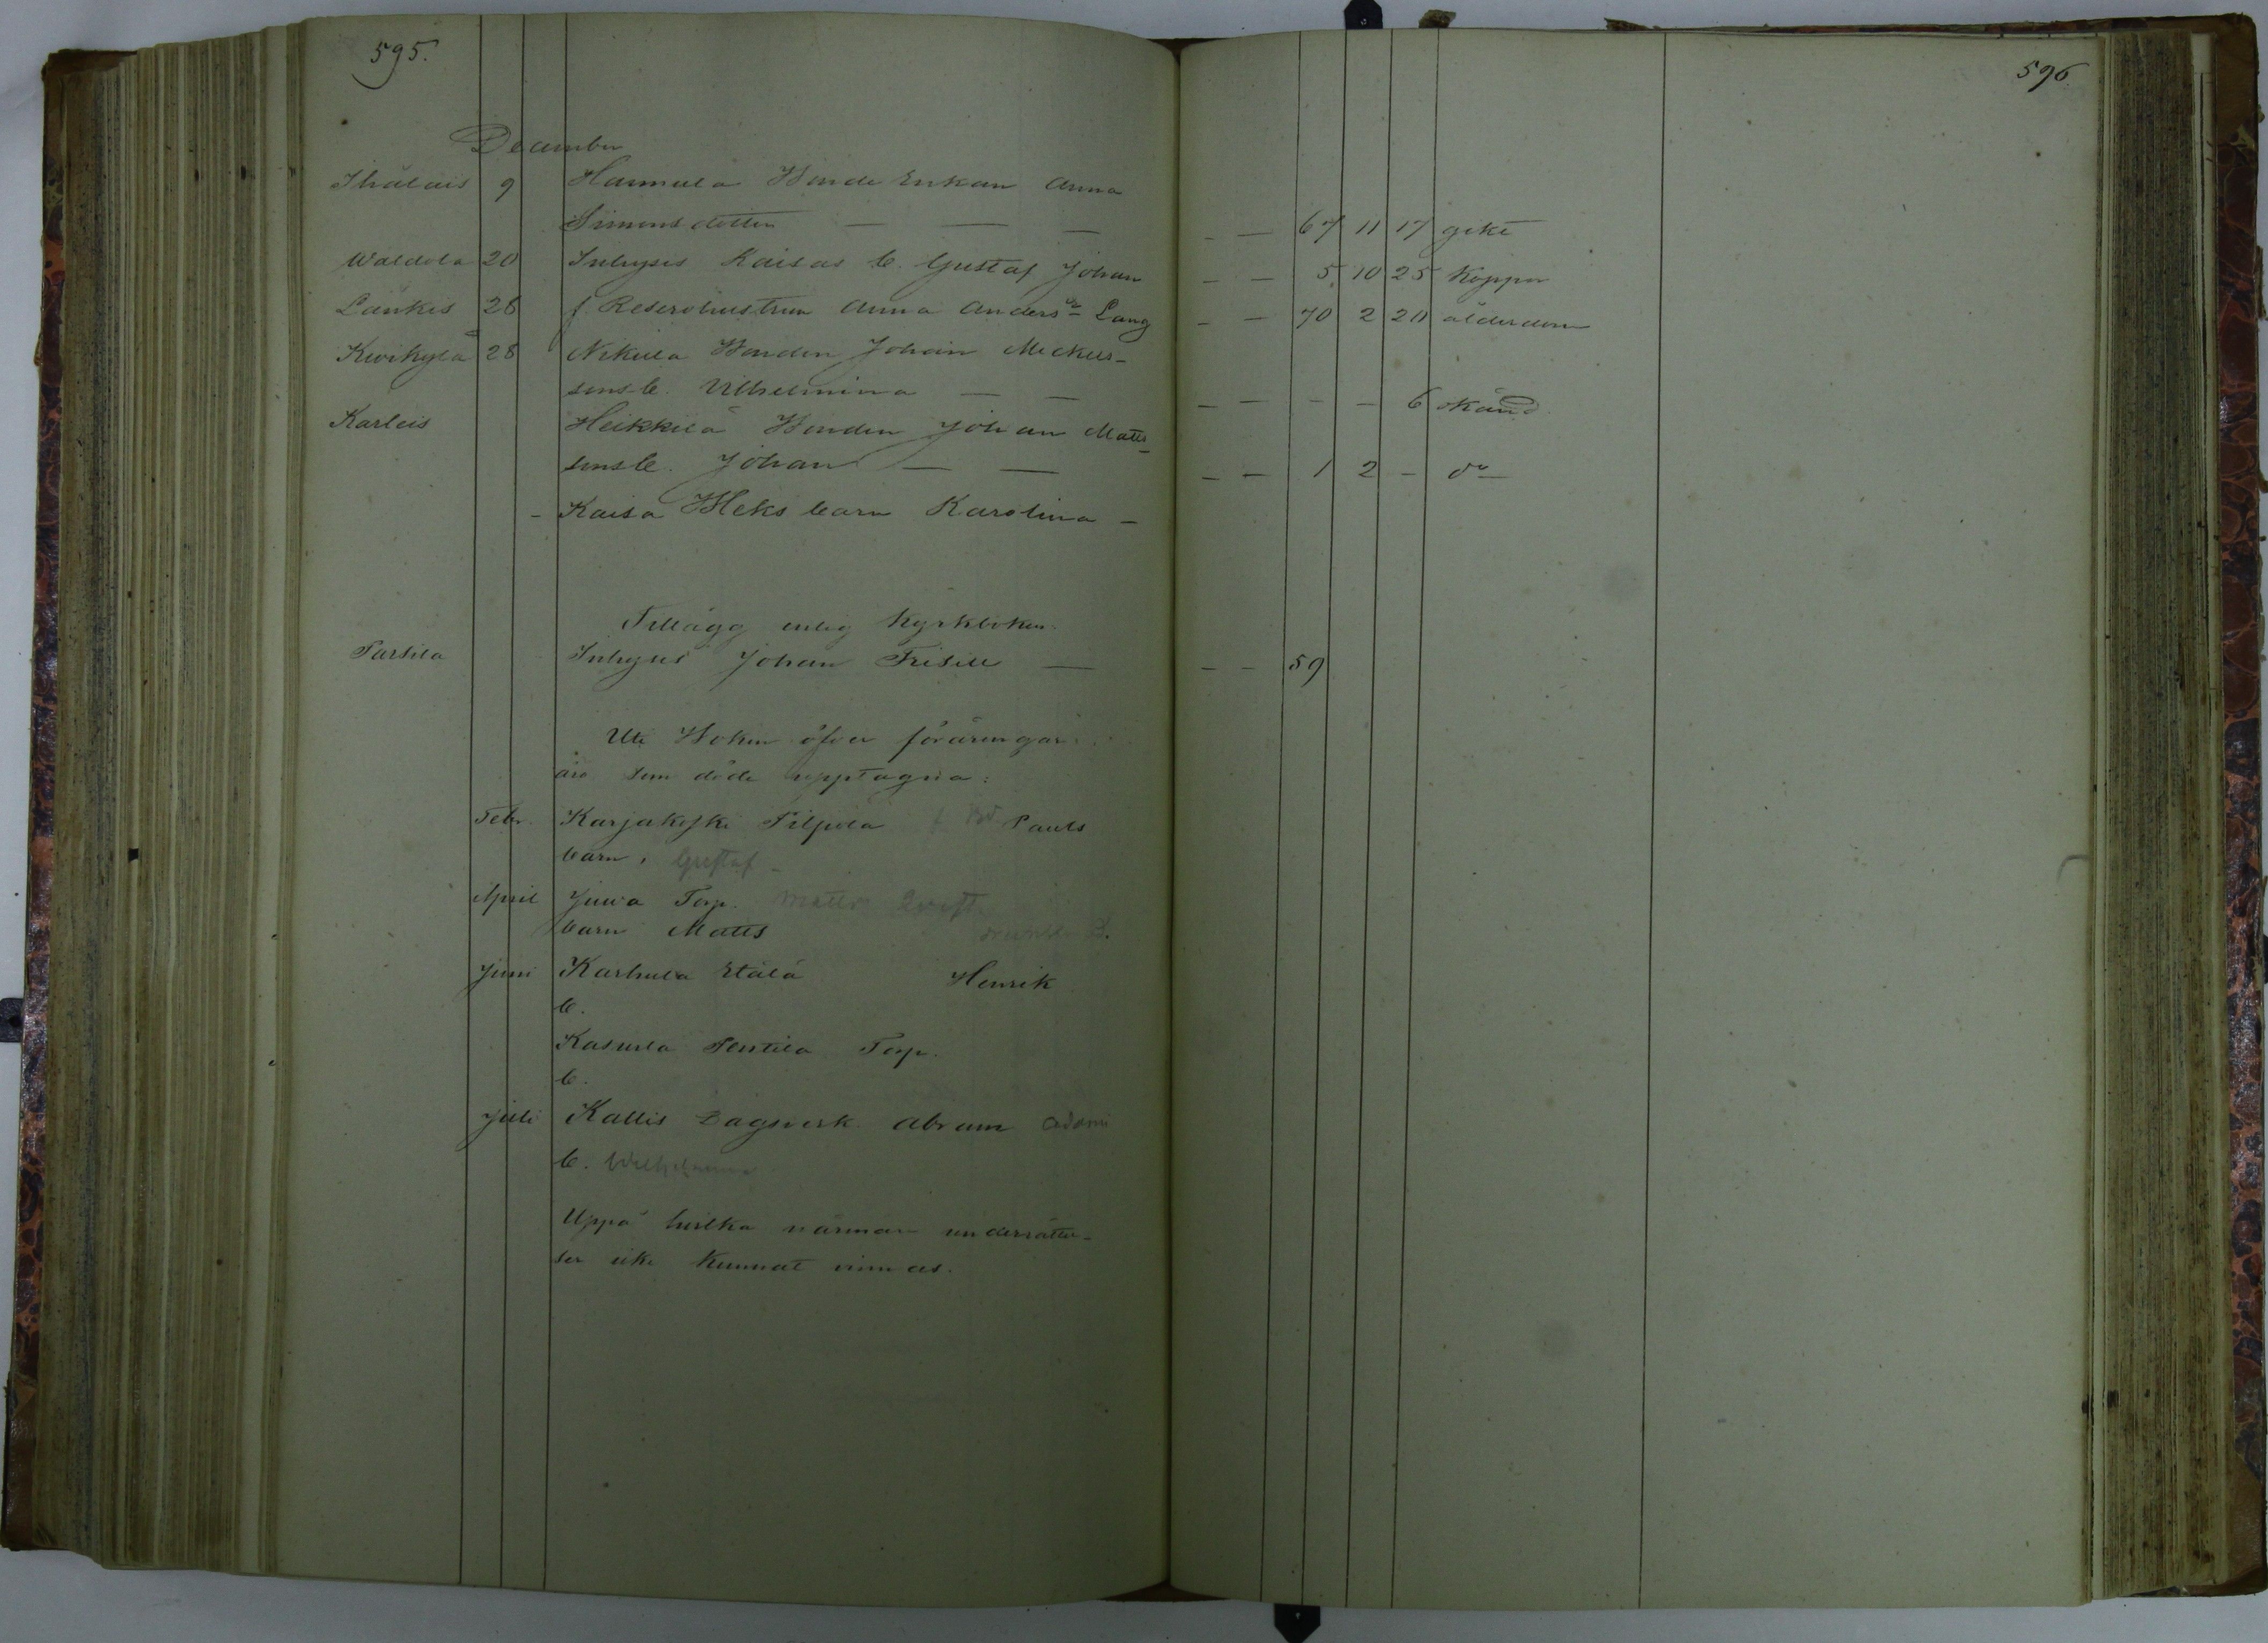 595.
596
December
Ihälais 9 Hannula Bonde Enkan Anna
Simons dotter — — — — — 67 11 17 gikt
Waldola 20 Inhyses Kaisas b. Gustaf Johan — — 5 10 25 koppor
Länkis 26 f Reservhustrun Anna Anders dr Lang — — 70 2 20 ålderdom
Kivikylä 28 Nikula Bonden Johan Mickels-
sons b. Vilhelmina — — — — — — 6 okänd
Karleis Heikkilä Bonden Johan Matts-
sons b. Johan — — — — 1 2 — do
- Kaisa Heks barn Karolina -
Tillägg enlig Kyrkboken.
Parsila Inhyses Johan Frisell — — — 59
Uti Boken öfver föräringar
äro som döde upptagna:
Febr. Karjakoski Pilpola f Bd Pauls
barn, Gustaf
April Juva Torp. Matts Qvist
barn Matts
Juni Karhula Etälä Henrik
b.
Kasurla Penttila Torp.
b.
Juli Kallis Dagsverk. Abram Adami
b. Wilhelmina
Uppå hvilka närmare underrättel-
ser icke kunnat vinnas.